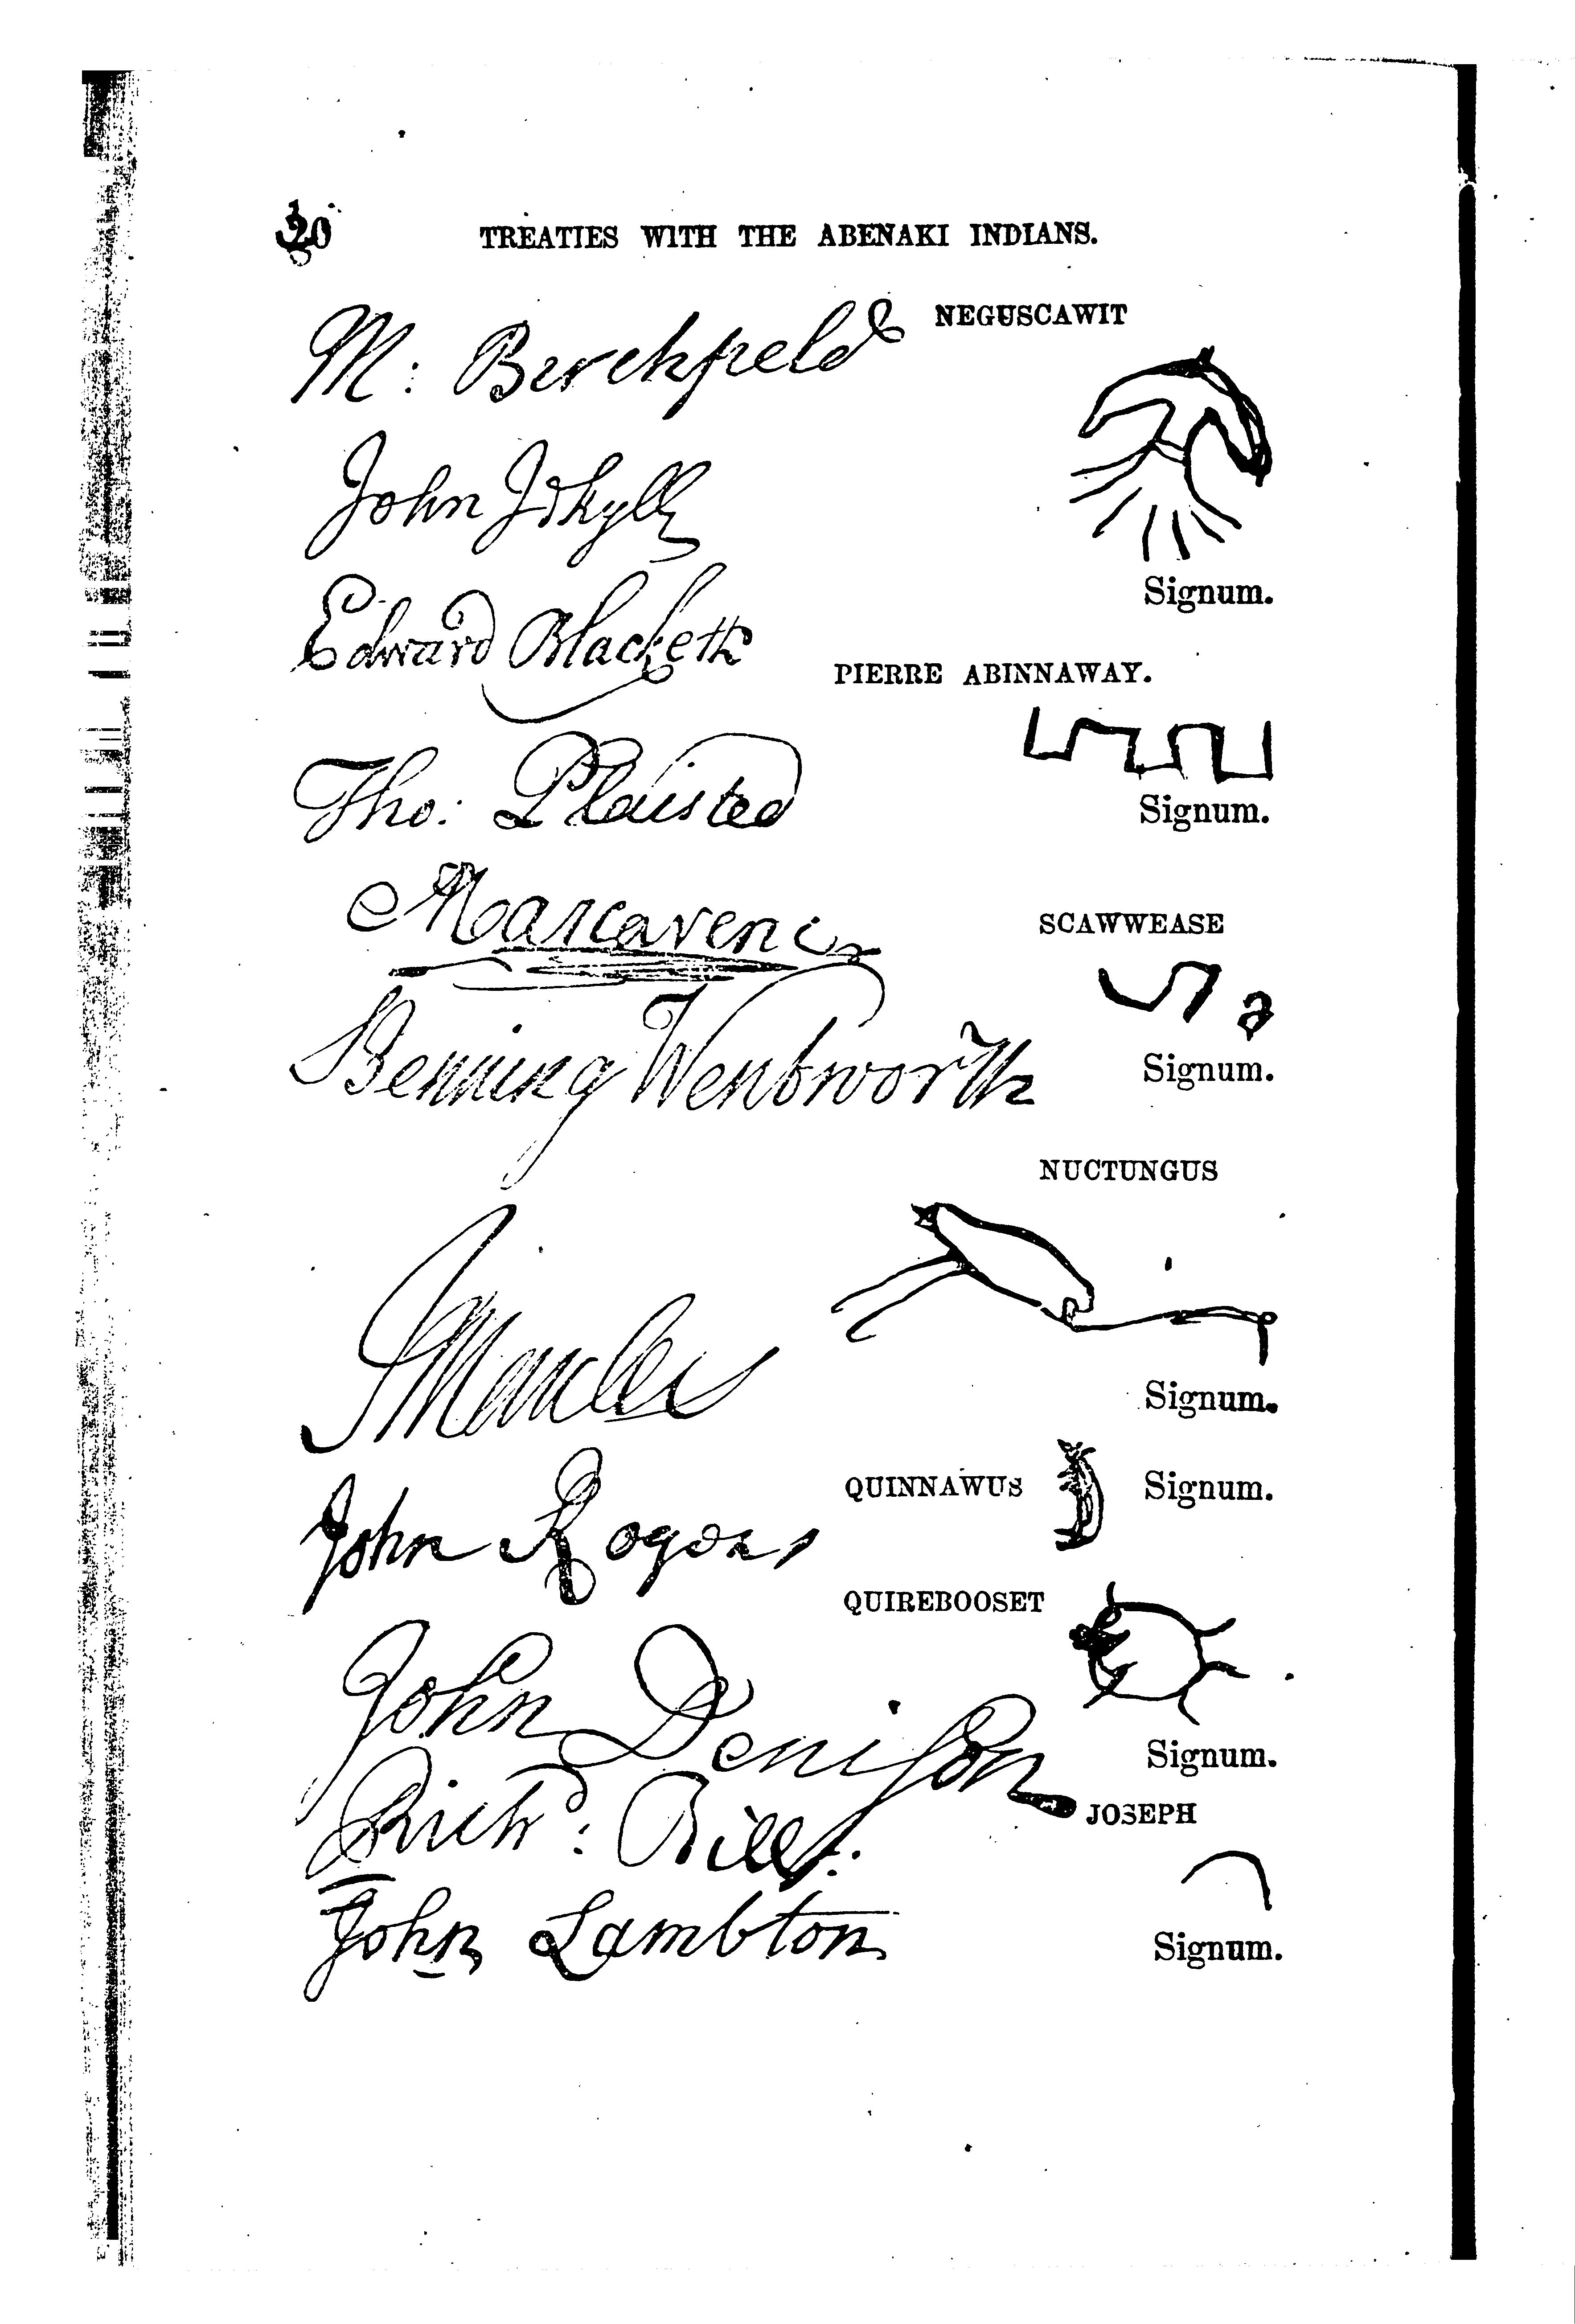 20 TREATIES WITH THE ABENAKI INDIANS.
M: Berchfield
NEGUSCAWIT
John Jekyll
Signum.
Edward Blackett
PIERRE ABINNAWAY.
Tho: Plaisted
Signum.
Mascarene
SCAWWEASE
Benning Wentworth
Signum.
NUCTUNGUS
Signum.
QUINNAWUS Signum.
John Rogers
QUIREBOOSET
John Denison
Signum.
JOSEPH
Richd: Bill:
John Lambton
Signum.